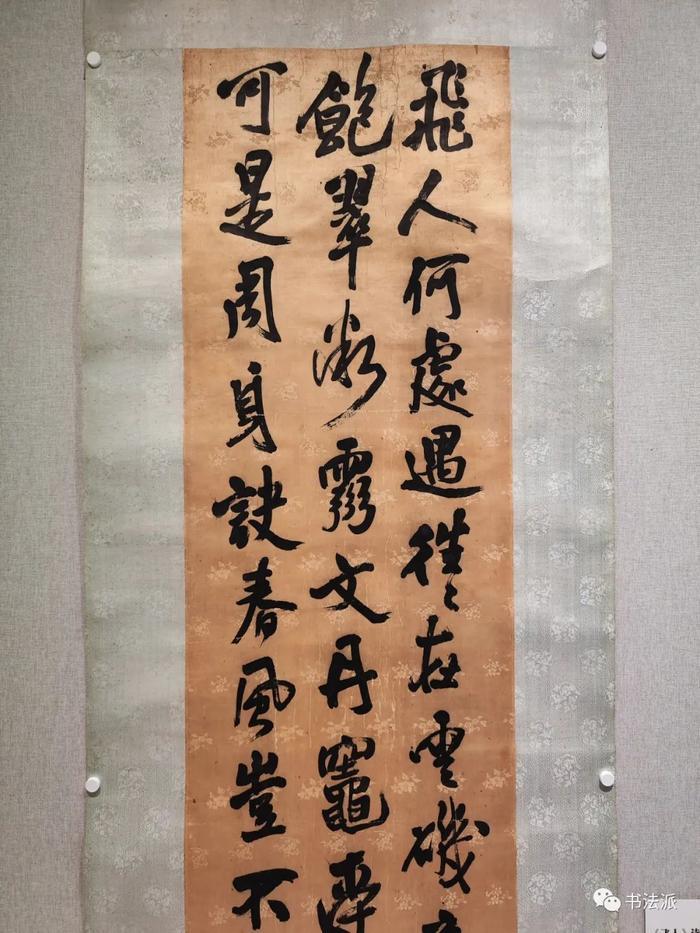 飛人何處遇往〻在雲磯
飽翠霧文丹竈
可是周身訣春風豈不
书法派